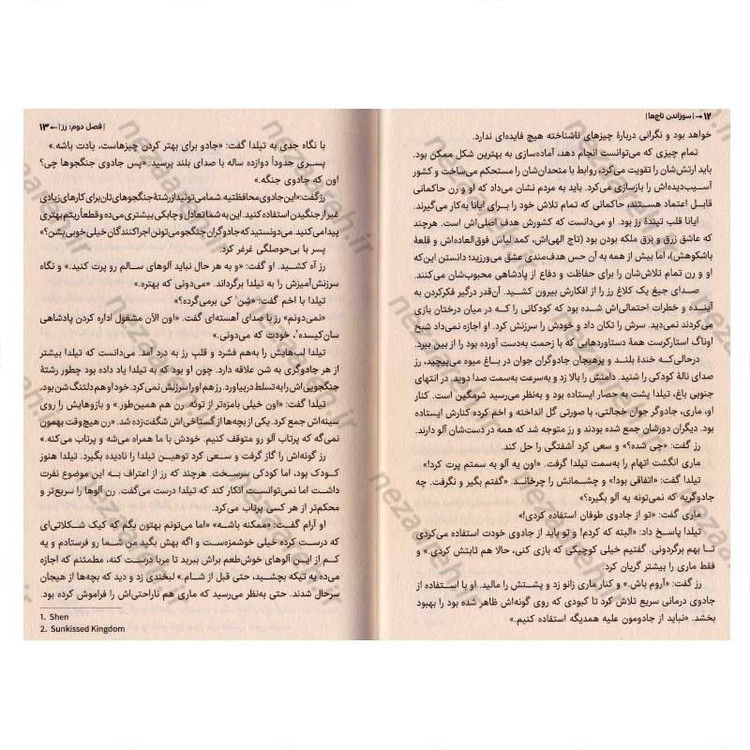 ۱۲ ← | سوزاندن تاج‌ها |
خواهد بود و نگرانی دربارهٔ چیزهای ناشناخته هیچ فایده‌ای ندارد.
تمام چیزی که می‌توانست انجام دهد، آماده‌سازی به بهترین شکل ممکن بود.
باید ارتش‌شان را تقویت می‌کرد، روابط با متحدان‌شان را مستحکم می‌ساخت و کشور
آسیب‌دیده‌اش را بازسازی می‌کرد. باید به مردم نشان می‌داد که او و رن حاکمانی
قابل اعتماد هستند، حاکمانی که تمام تلاش خود را برای ایانا به‌کار می‌گیرند.
ایانا قلب تپندهٔ رز بود. او می‌دانست که کشورش هدف اصلی‌اش است. هرچند
که عاشق زرق و برق ملکه بودن بود (تاج الهی‌اش، کمد لباس فوق‌العاده‌اش و قلعهٔ
باشکوهش)، اما بیش از همه به آن حس هدف‌مندی عشق می‌ورزید؛ دانستن این‌که
او و رن تمام تلاش‌شان را برای حفاظت و دفاع از پادشاهی محبوب‌شان می‌کنند.
صدای جیغ یک کلاغ رز را از افکارش بیرون کشید. آن‌قدر درگیر فکرکردن به
آینده و خطرات احتمالی‌اش شده بود که کودکانی را کـه در میان درختان بازی
می‌کردند نمی‌دید. سرش را تکان داد و خودش را سرزنش کرد. او اجازه نمی‌داد شبح
اوناگ استارکرست همهٔ دستاوردهایی که با زحمت به‌دست آورده بود را از بین ببرد.
درحالی‌کـه خندهٔ بلنـد و پرهیجان جادوگران جوان در باغ میوه می‌پیچید، رز
صدای نالهٔ کودکی را شنید. دامنش را بالا زد و به‌سرعت به‌سمت صدا دوید. در انتهای
جنوبی باغ، تیلدا پشت به حصار ایستاده بود و به‌نظر می‌رسید شرمگین است. کنار
او، ماری، جادوگر جوان خجالتی، با صورتی گل انداخته و اخم کرده کنارش ایستاده
بود. دیگران دورشان جمع شده بودند و رز متوجه شد که همه در دست‌شان آلو دارند.
رز گفت: «چی شده؟» و سعی کرد آشفتگی را حل کند.
ماری انگشت اتهام را به‌سمت تیلدا گرفت. «اون یه آلو به سمتم پرت کرد!»
تیلدا گفت: «اتفاقی بود!» و چشمـانش را چرخاند. «گفتم بگیر و نگرفت. چه
جادوگریه که نمی‌تونه یه آلو بگیره؟»
ماری گفت: «تو از جادوی طوفان استفاده کردی!»
تیلدا پاسخ داد: «البته که کردم! و تو باید از جادوی خودت استفاده می‌کردی
تا بهم برگردونی. گفتیم خیلی کوچیکی که بازی کنی، حالا هم ثابتش کردی.» و
فقط ماری را بیشتر گریان کرد.
رز گفت: «آروم باش.» و کنار ماری زانو زد و پشتـش را مالید. او بـا استفـاده از
جادوی درمانی سریع تلاش کرد تا کبودی که روی گونه‌اش ظاهر شده بود را بهبود
بخشد. «نباید از جادومون علیه همدیگه استفاده کنیم.»
| فصل دوم: رز | → ۱۳
با نگاه جدی به تیلدا گفت: «جادو برای بهتر کردن چیزهاست، یادت باشه.»
پسـری حدوداً دوازده ساله با صدای بلند پرسید: «پس جادوی جنگجوها چی؟
اون که جادوی جنگه.»
رز گفت: «این جادوی محافظتیه. شما می‌تونید از رشتهٔ جنگجوهای‌تان برای کارهای زیادی
غیر از جنگیدن استفاده کنید. این به شما تعادل و چابکی بیشتری می‌ده و قطعاً ریتم بهتری
پیدا می‌کنید. می‌دونستید که جادوگران جنگجو می‌تونن اجراکنندگان خیلی خوبی بشن؟»
پسر با بی‌حوصلگی غرغر کرد.
رز آه کشـید. او گفت: «و به هر حال نباید آلوهای سـالم رو پرت کنید.» و نگاه
سرزنش‌آمیزش را به تیلدا برگرداند. «می‌دونی که بهتره.»
تیلدا با اخم گفت: «شِن۱ کی برمی‌گرده؟»
«نمی‌دونم» رز با صدای آهسته‌ای گفت. «اون الآن مشغول اداره کردن پادشاهی
سان‌کیسده۲، خودت که می‌دونی.»
تیلدا لب‌هایش را به‌هم فشرد و قلب رز به درد آمد. می‌دانست که تیلدا بیشتر
از هر جادوگری به شن علاقه دارد. چون او بود که به تیلدا یاد داده بود چطور رشتهٔ
جنگجویی‌اش را به تسلط دربیاورد. رز هم او را سرزنش نمی‌کرد. خود او هم دلتنگ شن بود.
تیلدا گفت: «اون خیلی بامزه‌تر از توئه. رن هم همین‌طور.» و بازوهایش را روی
سینه‌اش جمع کرد. یکی از بچه‌ها از گستاخی‌اش شگفت‌زده شد. «رن هیچ‌وقت بهمون
نمی‌گه که پرتاب آلو رو متوقف کنیم. خودش با ما همراه می‌شه و پرتاب می‌کنه.»
رز گونه‌اش را گاز گرفت و سعـی کرد توهیـن تیلدا را نادیده بگیرد. تیلدا هنوز
کـودک بود، اما کودکی سرسـخت. هرچند که رز از اعتراف بـه این موضوع نفرت
داشت اما نمی‌توانسـت انکار کند که تیلدا درست می‌گفت. رن آلوها را سریع‌تر و
محکم‌تر از هر کسی پرتاب می‌کرد.
او آرام گفت: «ممکنه باشـه.» «اما می‌تونم بهتون بگم که کیک شکـلاتی‌ای
که درست کرده خیلی خوشمزه‌ست و اگه بهش بگید من شما رو فرستادم و یه
کم از ایـن آلوهای خوش‌طعم براش ببرید تا مربا درست کنه، مطمئنم که اجازه
می‌ده یه تیکه بچشید، حتی قبل از شام.» لبخندی زد و دید که بچه‌ها از هیجان
سرحال شدند. حتی به‌نظر می‌رسید که ماری هم ناراحتی‌اش را فراموش کرده بود.
1. Shen
2. Sunkissed Kingdom
nezaabeh.ir